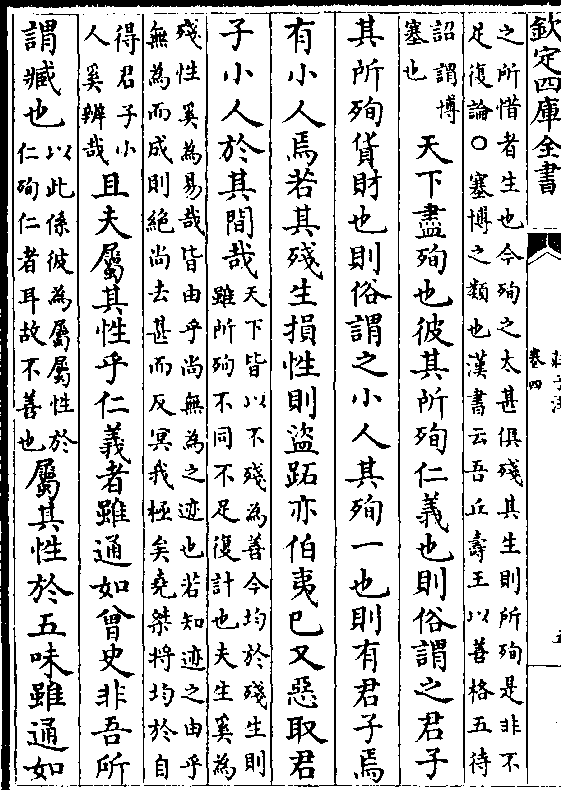 欽定四庫全書
卷四
之所惜者生也今殉之太甚俱殘其生則所殉是非不
足復論○塞博之類也漢書云吾丘壽王以善格五待
詔謂博
塞也
天下盡殉也彼其所殉仁義也則俗謂之君子
其所殉貨財也則俗謂之小人其殉一也則有君子焉
有小人焉若其殘生損性則盜跖亦伯夷巳又惡取君
子小人於其間哉
天下皆以不殘為善今均於殘生則
雖所殉不同不足復計也夫生奚為
殘性奚為易哉皆由乎尚無為之迹也若知迹之由乎
無為而成則絶尚去甚而反冥我極矣堯桀將均於自
得君子小
人奚辨哉
且夫屬其性乎仁義者雖通如曾史非吾所
謂臧也
以此係彼為屬屬性於
仁殉仁者耳故不善也
屬其性於五味雖通如